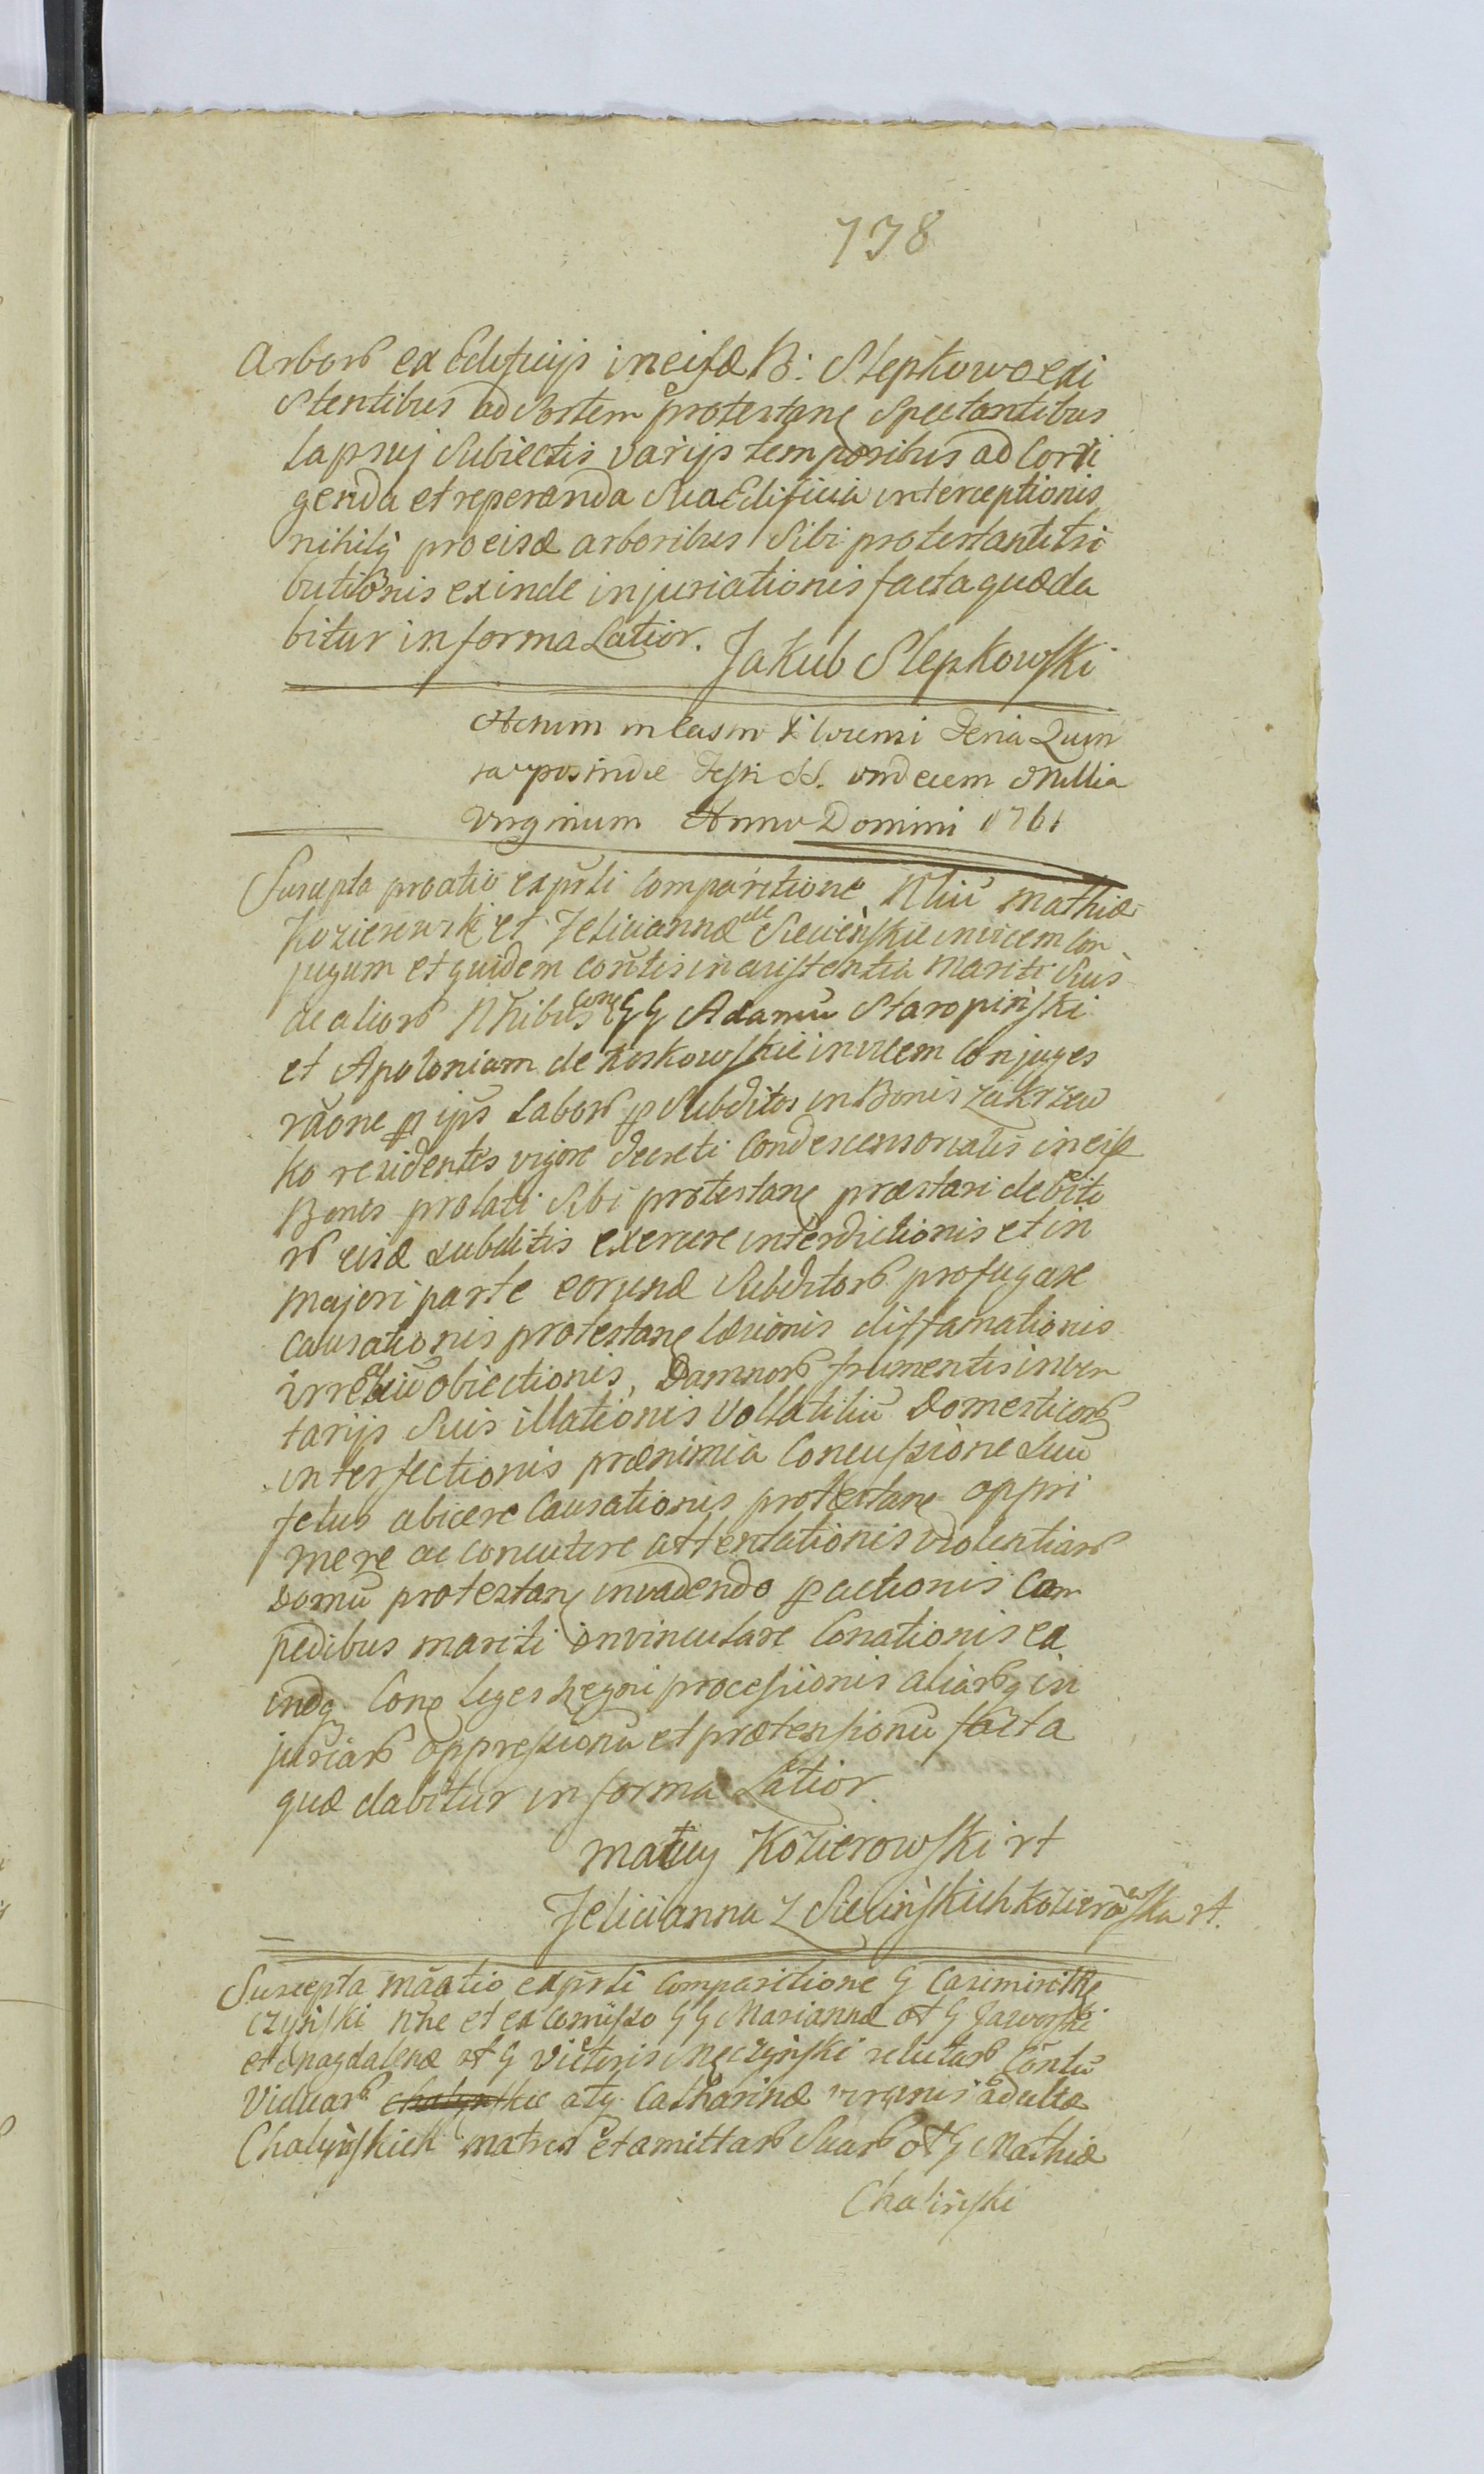 738
Arbor ex Edificijs in eisd B: Slepkowo exi
stentibus ad Sortem protestan Spectantibus
lapsuj Subiectis varijs temporibus ad Corri
genda et reperanda Sua Edificia interceptionis
nihilq pro eisd arboribus Sibi protestanti tri
butionis exinde injuriationis facta quæ da
bitur in forma Latior.
Jakub Slepkowski
Actum in Castro Feria Quin
ta post Festi SS. undecem Millia
Virginum Anno Domini 1761
Suscepta pro atio ex pñti Comparitione Mathiæ
et Feliciannæ de Siecińskie invicem Con
jugum et quidem in assistentia Mariti Sui
ac alior Nñibus Con GG Adamū Staropiński
et Apoloniam de Koskowskie invicem Conjuges
rāone Labor Subditos in Bonis Zakrzew
ko residentes vigore Decreti Condescensorialis in eisd
Bonis prolati Sibi protestan præstari debito
r eisd subditis exercere interdictionis et in
majori parte eorund Subditor profugare
Causationis protestan læsionis diffamationis
obiectionis, Damnor frumentis inven
tarijs Suis illationis Vollatiliū Domesticor
interfectionis præ nimia Concussione Suū
fetus abicere Causationis protestan oppri
mere ac concutere attentationis violentiar
Domū protestan invadendo actionis Com
pedibus mariti invinculare Conationis ex
indq Con leges Regni processionis aliarq in
juriar oppressionū et prætensionū facta
quæ dabitur in forma Latior.
Maciey Kozierowski
Felicianna z Siecińskich
Suscepta māatio ex pñti Comparitione G Casimiri
czyński nñe et ex Comisso GG Mariannæ G Jaworski
et Magdalenæ G Victoris Męczyński relictar
Viduar atq Catharinæ virginis adultæ
Chalyńskich matris et amittar Suar G Mathiæ
Chaliński